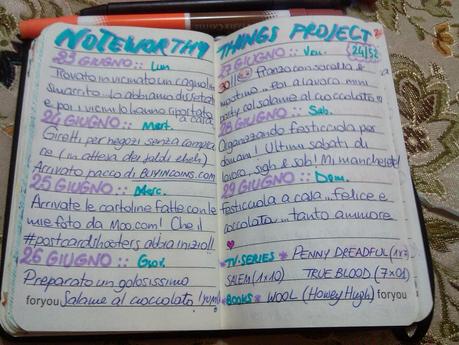 NOTEWORTHY
23 GIUGNO :: Lun.
Trovato in vicinato un cagnolino
smarrito.. lo abbiamo dissetato
e poi i vicini lo hanno riportato
a casa
24 GIUGNO :: Mart.
Giretti per negozi senza comprare
(in attesa dei saldi eheh)
Arrivato pacco di BUYINCOINS.com
25 GIUGNO :: Merc.
Arrivate le cartoline fatte con le
mie foto da Moo.com! Che il
#postcardshooters abbia inizio!!
26 GIUGNO :: Giov.
Preparato un golosissimo
foryou Salame al cioccolato! yum!
THINGS PROJECT
24/52
27 GIUGNO :: Ven.
30!! Pranzo con sorella e
nipotino... poi a lavoro mini
party col salame al cioccolato!!!
28 GIUGNO :: Sab.
Organizzando festicciola per
domani! Ultimi sabati di
lavoro.. sigh e sob! Mi mancherete!
29 GIUGNO :: Dom.
Festicciola a casa.. felice e
cioccolata... tanto ammore
TV-SERIES * PENNY DREADFUL
SALEM (1x10) TRUE BLOOD (7x01)
BOOKS * WOOL (Howey Hugh) foryou